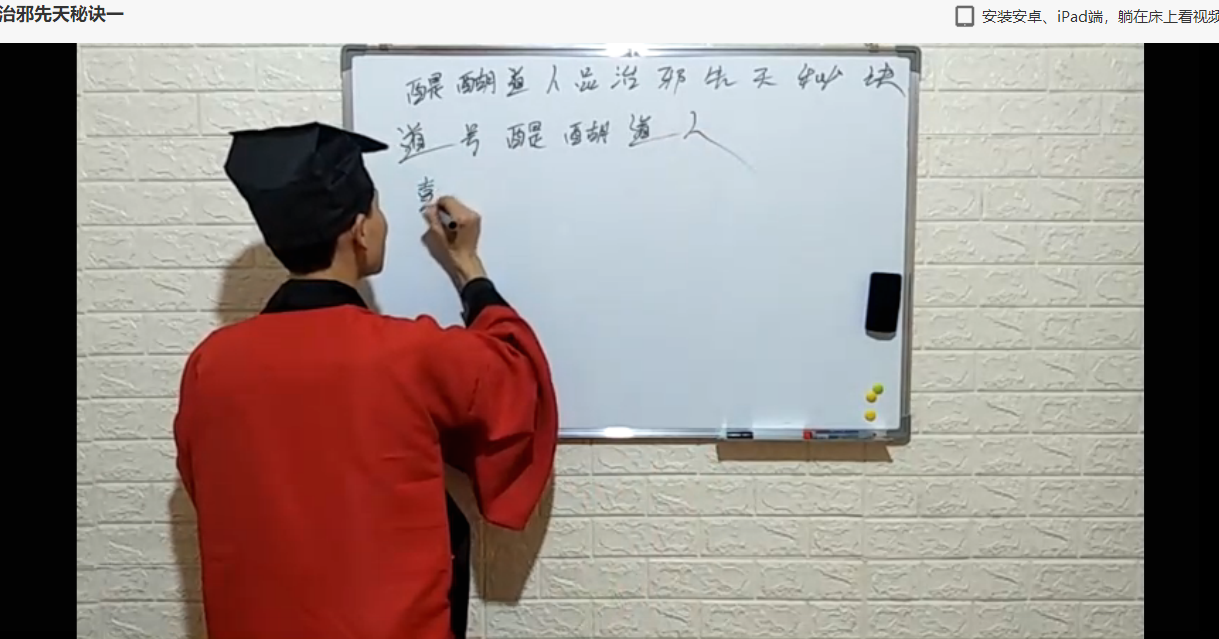 治邪先天秘诀一
安装安卓、iPad端，躺在床上看视频
醍醐道人品治邪先天秘诀
道号醍醐道人